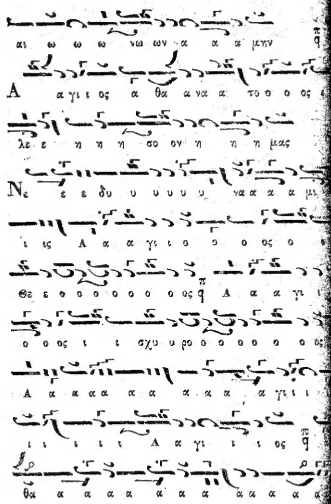 αι ω ω ω νω ων α α α μην π q
Α α γι ι ος α θα α να α το ο ο ος ι
λε ε η η η σο ον η η η μας
Νε ε ε δυ υ υ υ υ υ να α α α μι
ι ις Α α α γι ι ο ο ο ος ο
Θε ε ο ο ο ο ο ο ο ος π q Α α α γι ι
ο ο ος ι ι σχυ υ ρο ο ο ο ο ο ος
Α α α α α α α α α α α γι ι
ι ι ι ι ι Α α γι ι ι ος π q
θα α α α α α α α α α α α